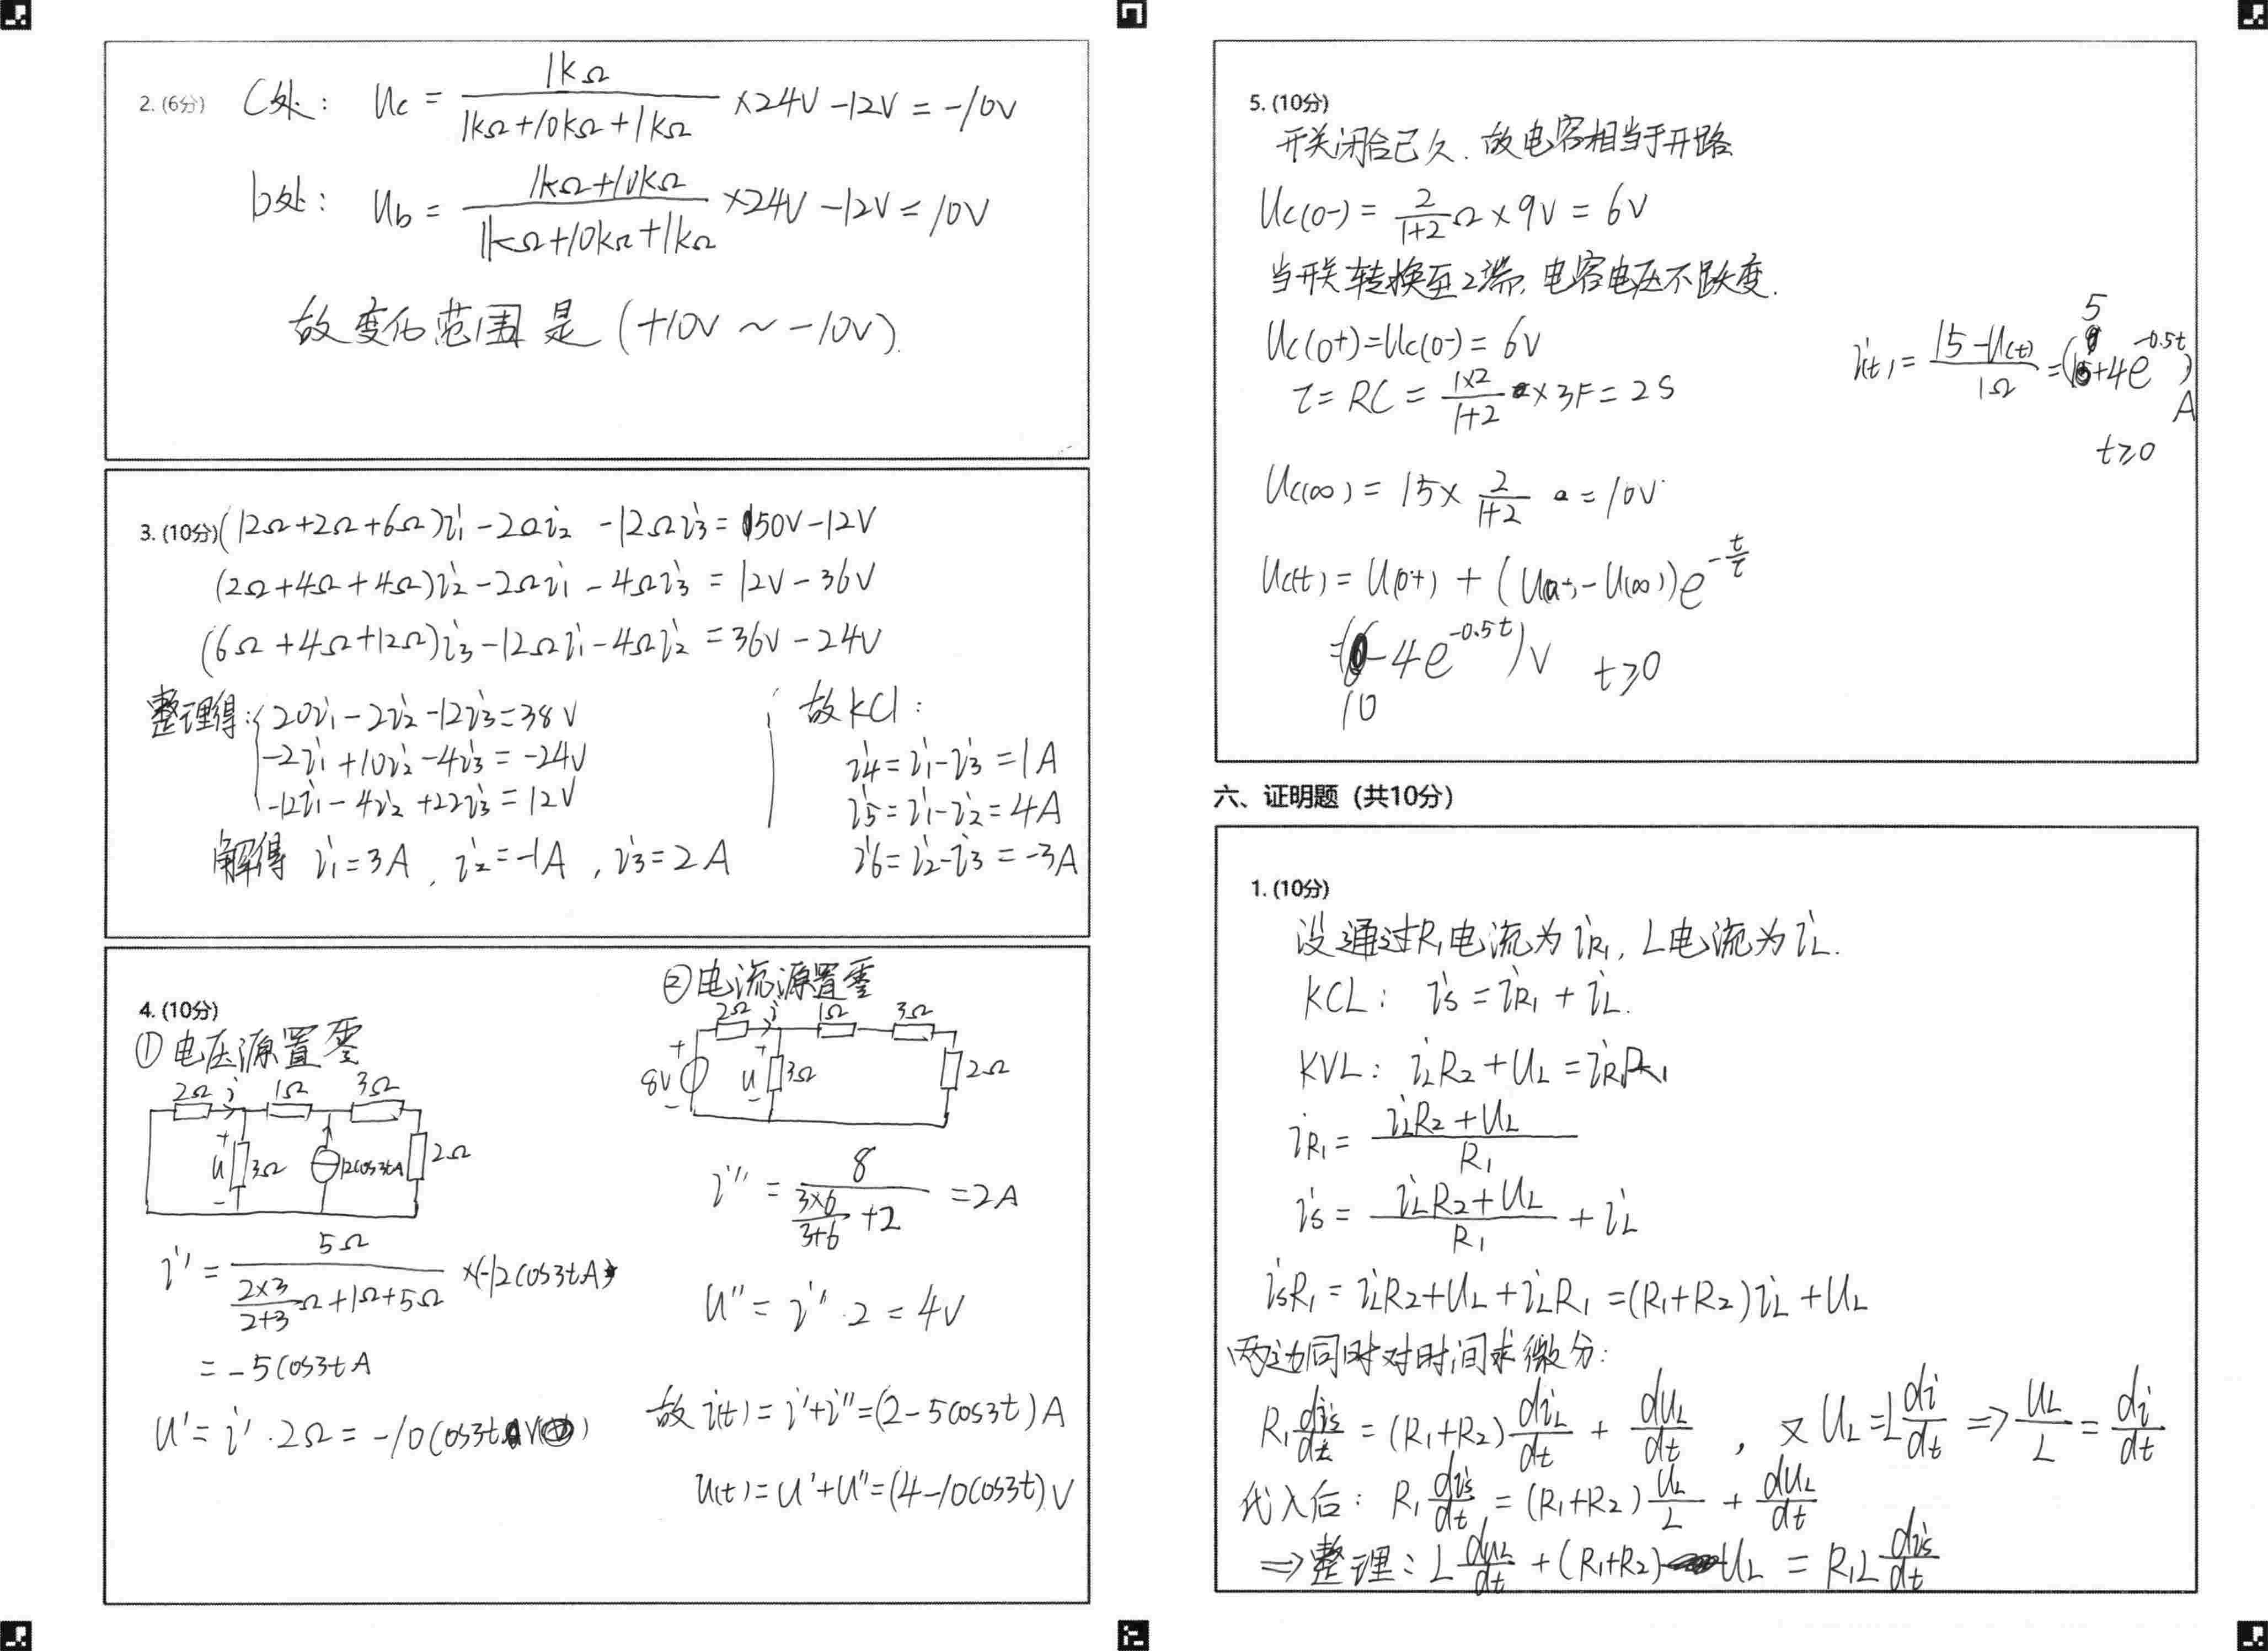 2. (6分) C处： Uc = 1kΩ / (1kΩ+10kΩ+1kΩ) ×24V -12V = -10V
b处： Ub = (1kΩ+10kΩ) / (1kΩ+10kΩ+1kΩ) ×24V -12V = 10V
故变化范围是 (+10V ～ -10V).
3. (10分) (12Ω+2Ω+6Ω)i1 - 2Ωi2 - 12Ωi3 = 50V-12V
(2Ω+4Ω+4Ω)i2 - 2Ωi1 - 4Ωi3 = 12V-36V
(6Ω+4Ω+12Ω)i3 - 12Ωi1 - 4Ωi2 = 36V-24V
整理得： 20i1-2i2-12i3=38V
-2i1+10i2-4i3=-24V
-12i1-4i2+22i3=12V
解得 i1=3A, i2=-1A, i3=2A
故KCl：
i4=i1-i3=1A
i5=i1-i2=4A
i6=i2-i3=-3A
4. (10分)
①电压源置零
2Ω i 1Ω 3Ω
+ u - 3Ω 12cos3tA 2Ω
i' = 5Ω / (2×3/2+3 Ω+1Ω+5Ω) ×(-12cos3tA)
= -5cos3tA
u' = i'·2Ω = -10cos3t V
②电流源置零
2Ω i 1Ω 3Ω
+ 8V - + u - 3Ω 2Ω
i'' = 8 / (3×6/3+6 +2) = 2A
u'' = i''·2 = 4V
故i(t) = i'+i'' = (2-5cos3t)A
u(t) = u'+u'' = (4-10cos3t)V
5. (10分)
开关闭合已久. 故电容相当于开路
Uc(0-) = 2/1+2 Ω×9V = 6V
当开关转换至2端, 电容电压不跃变.
Uc(0+)=Uc(0-)=6V
τ=RC= 1×2/1+2 ×3F=2S
Uc(∞) = 15× 2/1+2 = 10V
Uc(t) = U(0+) + (U(0+)-U(∞))e^(-t/τ)
=(10-4e^(-0.5t))V t≥0
i(t) = 15-U(t) / 1Ω = (5+4e^(-0.5t))A
t≥0
六、证明题（共10分）
1. (10分)
设通过R1电流为iR1, L电流为iL.
KCL： is = iR1 + iL.
KVL： iLR2+UL = iR1R1
iR1 = (iLR2+UL) / R1
is = (iLR2+UL) / R1 + iL
isR1 = iLR2+UL+iLR1 = (R1+R2)iL+UL
两边同时对时间求微分：
R1 dis/dt = (R1+R2) diL/dt + dUL/dt , 又 UL=L di/dt ⇒ UL/L = di/dt
代入后： R1 dis/dt = (R1+R2) UL/L + dUL/dt
⇒整理： L duL/dt + (R1+R2) UL = R1L dis/dt